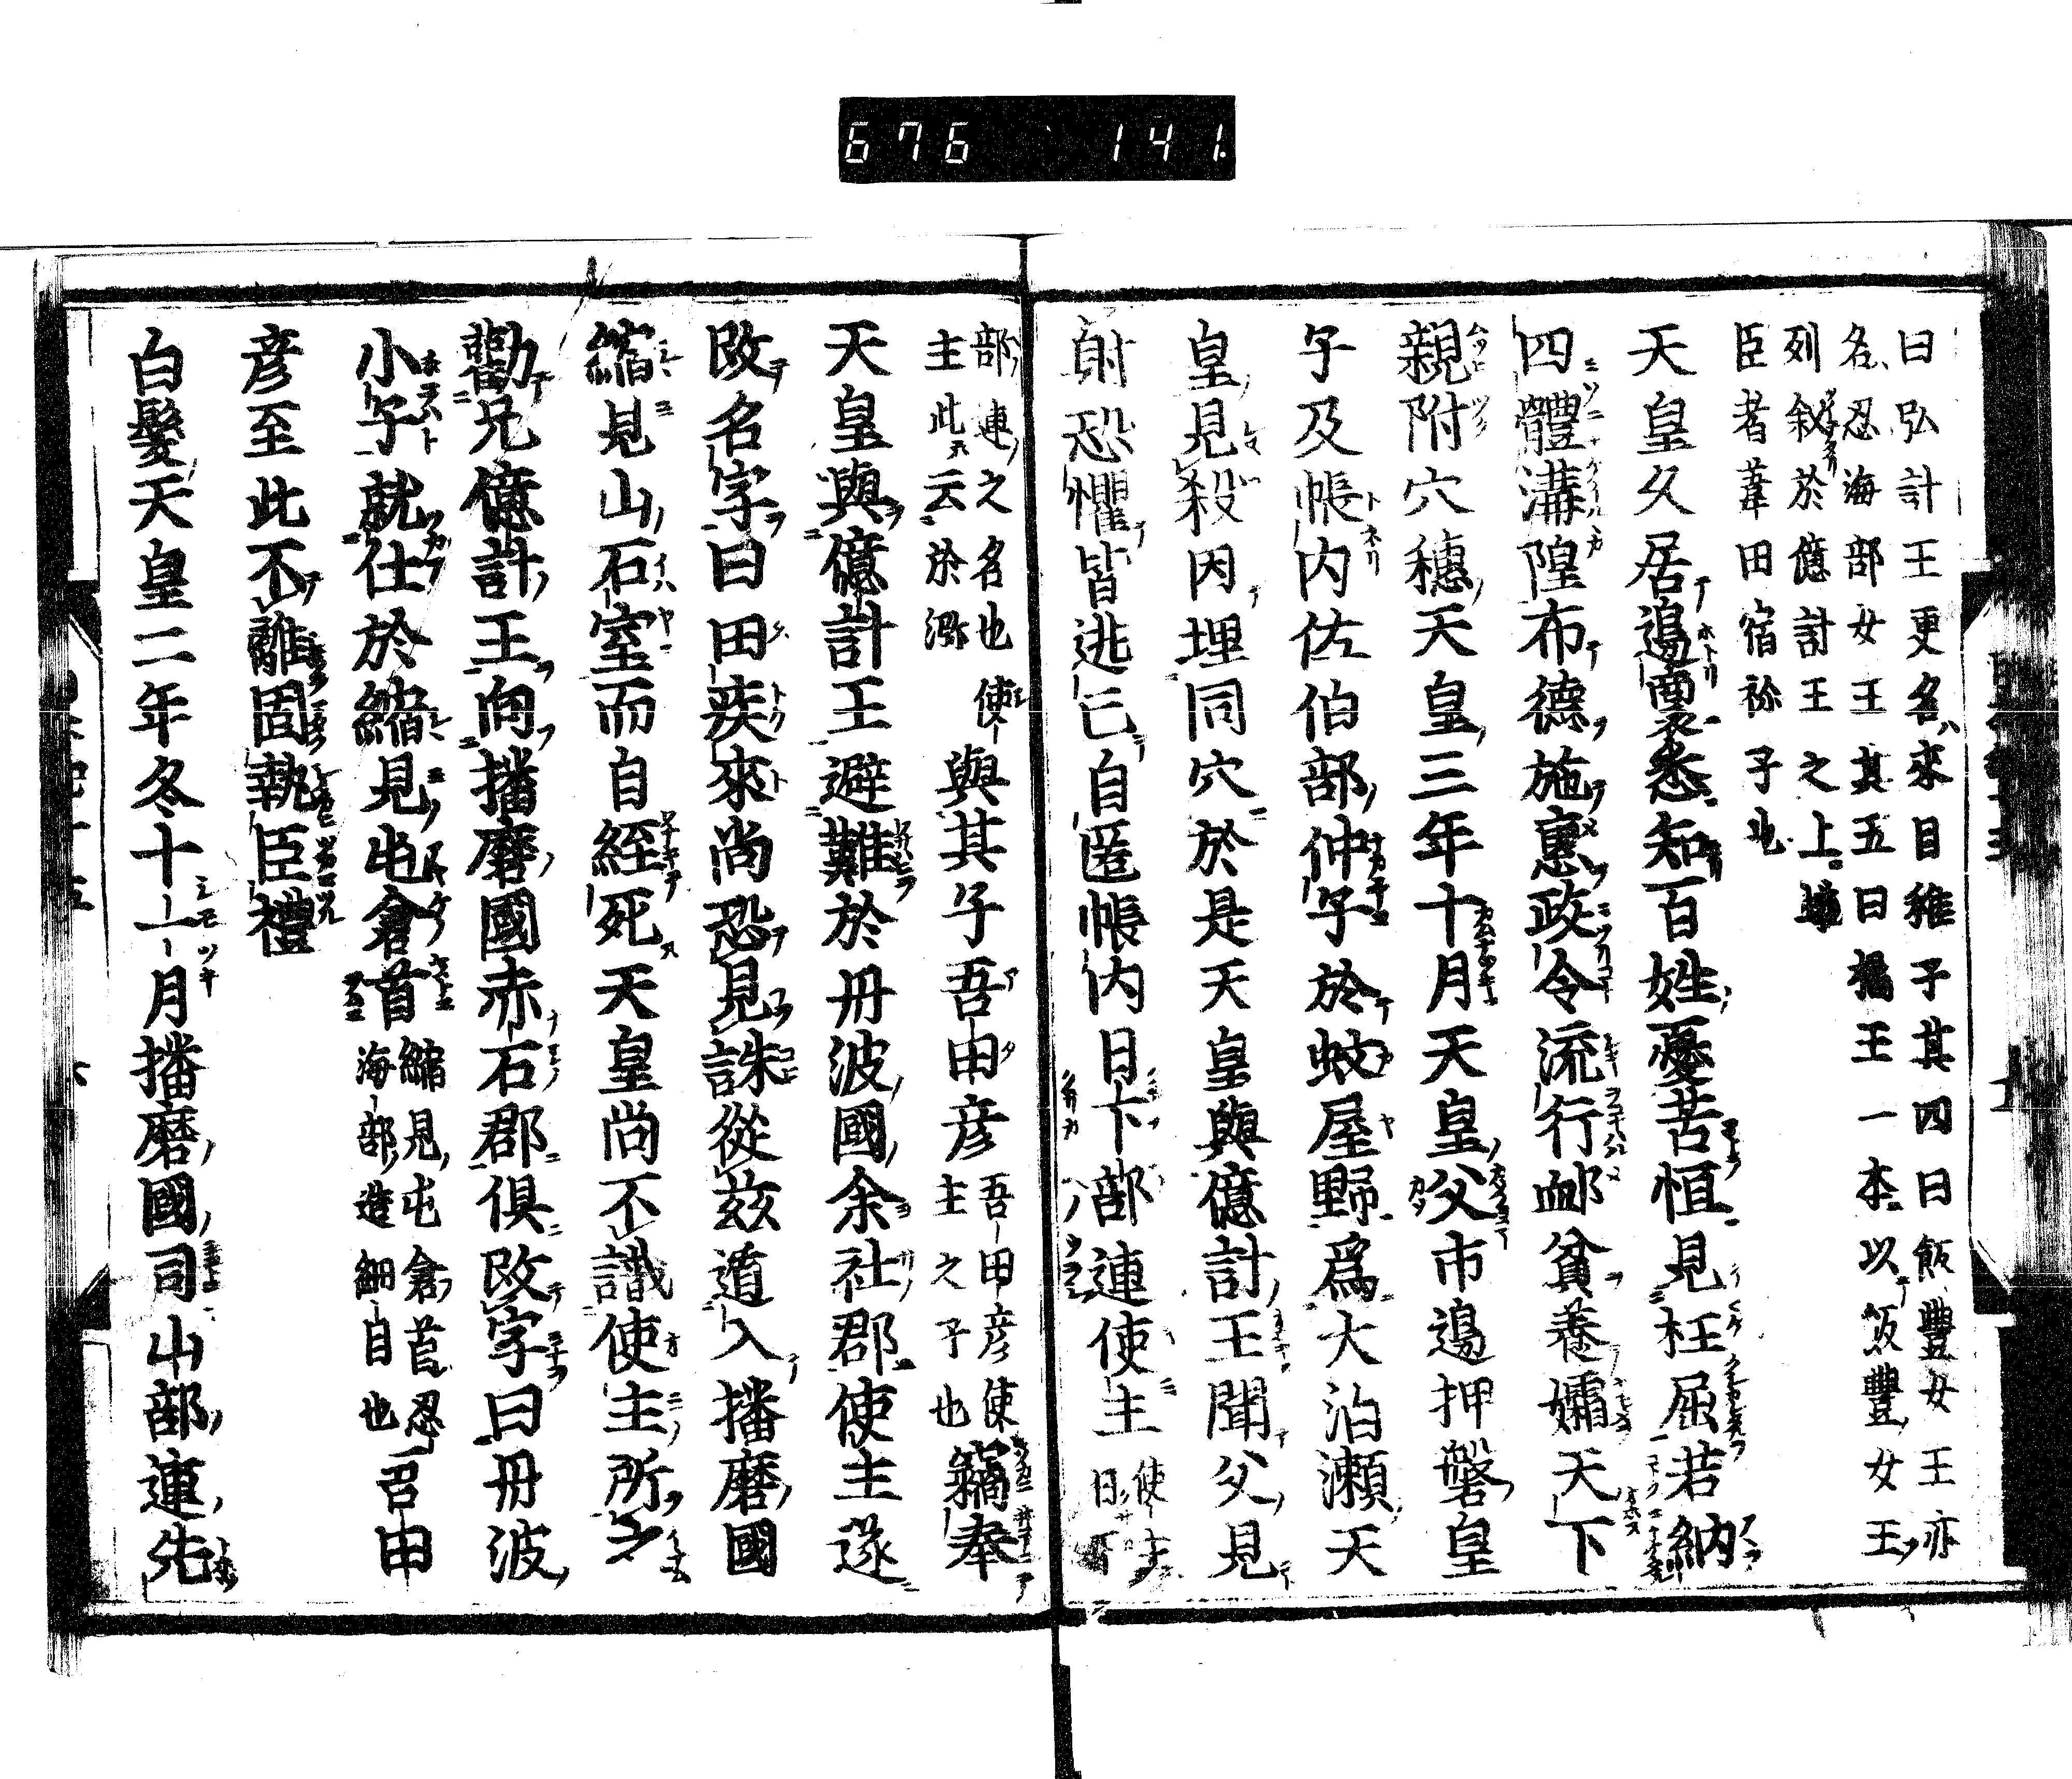 676 141
曰弘計王更名來目稚子其四曰飯豐女王亦
名忍海部女王其五曰橘王一本以飯豐女王
列叙於億計王之上
臣者葦田宿祢子也
天皇久居邊裏悉知百姓憂苦恒見枉屈若納
四體溝隍布德施惠政令流行䘏貧養孀天下
親附穴穗天皇三年十月天皇父市邊押磐皇
子及帳内佐伯部仲子於蚊屋野爲大泊瀬天
皇見殺因埋同穴於是天皇與億計王聞父見
射恐懼皆逃亡自匿帳内日下部連使主使主
日下
部連之名也使
主此云於瀰
與其子吾田彦吾田彦使
主之子也
竊奉
天皇與億計王避難於丹波國余社郡使主遂
改名字曰田疾來尚恐見誅從兹遁入播磨國
縮見山石室而自經死天皇尚不識使主所之
勸兄億計王向播磨國赤石郡倶改字曰丹波
小子就仕於縮見屯倉首縮見屯倉首忍
海部造細目也
吾田
彦至此不離固執臣禮
白髪天皇二年冬十一月播磨國司山部連先